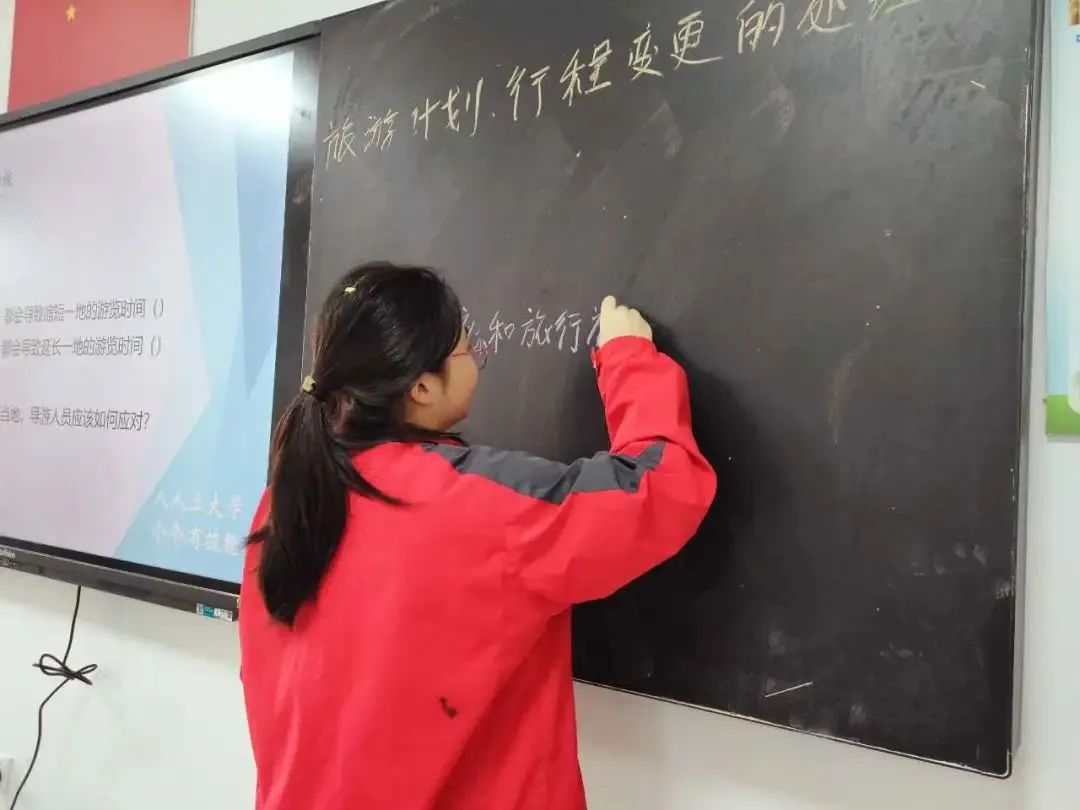 旅游计划、行程变更的处理
和旅行
都会导致缩短一地的游览时间（）
都会导致延长一地的游览时间（）
当地，导游人员应该如何应对?
人人上大学
个个有技能